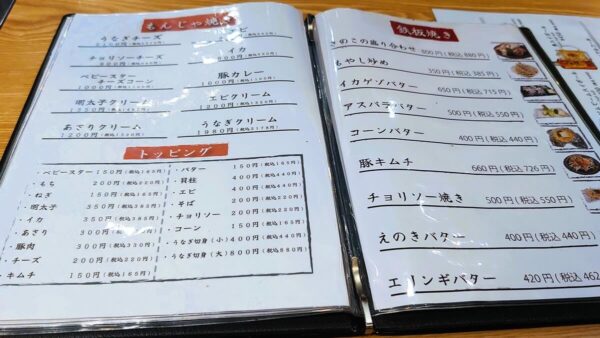 もんじゃ焼き
うなぎチーズ
チョリソーチーズ
ベビースター
チーズコーン
明太子クリーム
あさりクリーム
エビ
イカ
豚カレー
エビクリーム
うなぎクリーム
1980円(税込2178円)
トッピング
・ベビースター 150円(税込165円)
・もち 200円(税込220円)
・ねぎ 150円(税込165円)
・明太子 350円(税込385円)
・イカ 350円(税込385円)
・あさり 300円(税込330円)
・豚肉 300円(税込330円)
・チーズ 200円(税込220円)
・キムチ 150円(税込165円)
・バター 150円(税込165円)
・貝柱 400円(税込440円)
・エビ 400円(税込440円)
・そば 200円(税込220円)
・チョリソー 200円(税込220円)
・コーン 150円(税込165円)
・うなぎ切身(小) 400円(税込440円)
・うなぎ切身(大) 800円(税込880円)
鉄板焼き
きのこの盛り合わせ 800円(税込880円)
もやし炒め 350円(税込385円)
イカゲソバター 650円(税込715円)
アスパラバター 500円(税込550円)
コーンバター 400円(税込440円)
豚キムチ 660円(税込726円)
チョリソー焼き 500円(税込550円)
えのきバター 400円(税込440円)
エリンギバター 420円(税込462